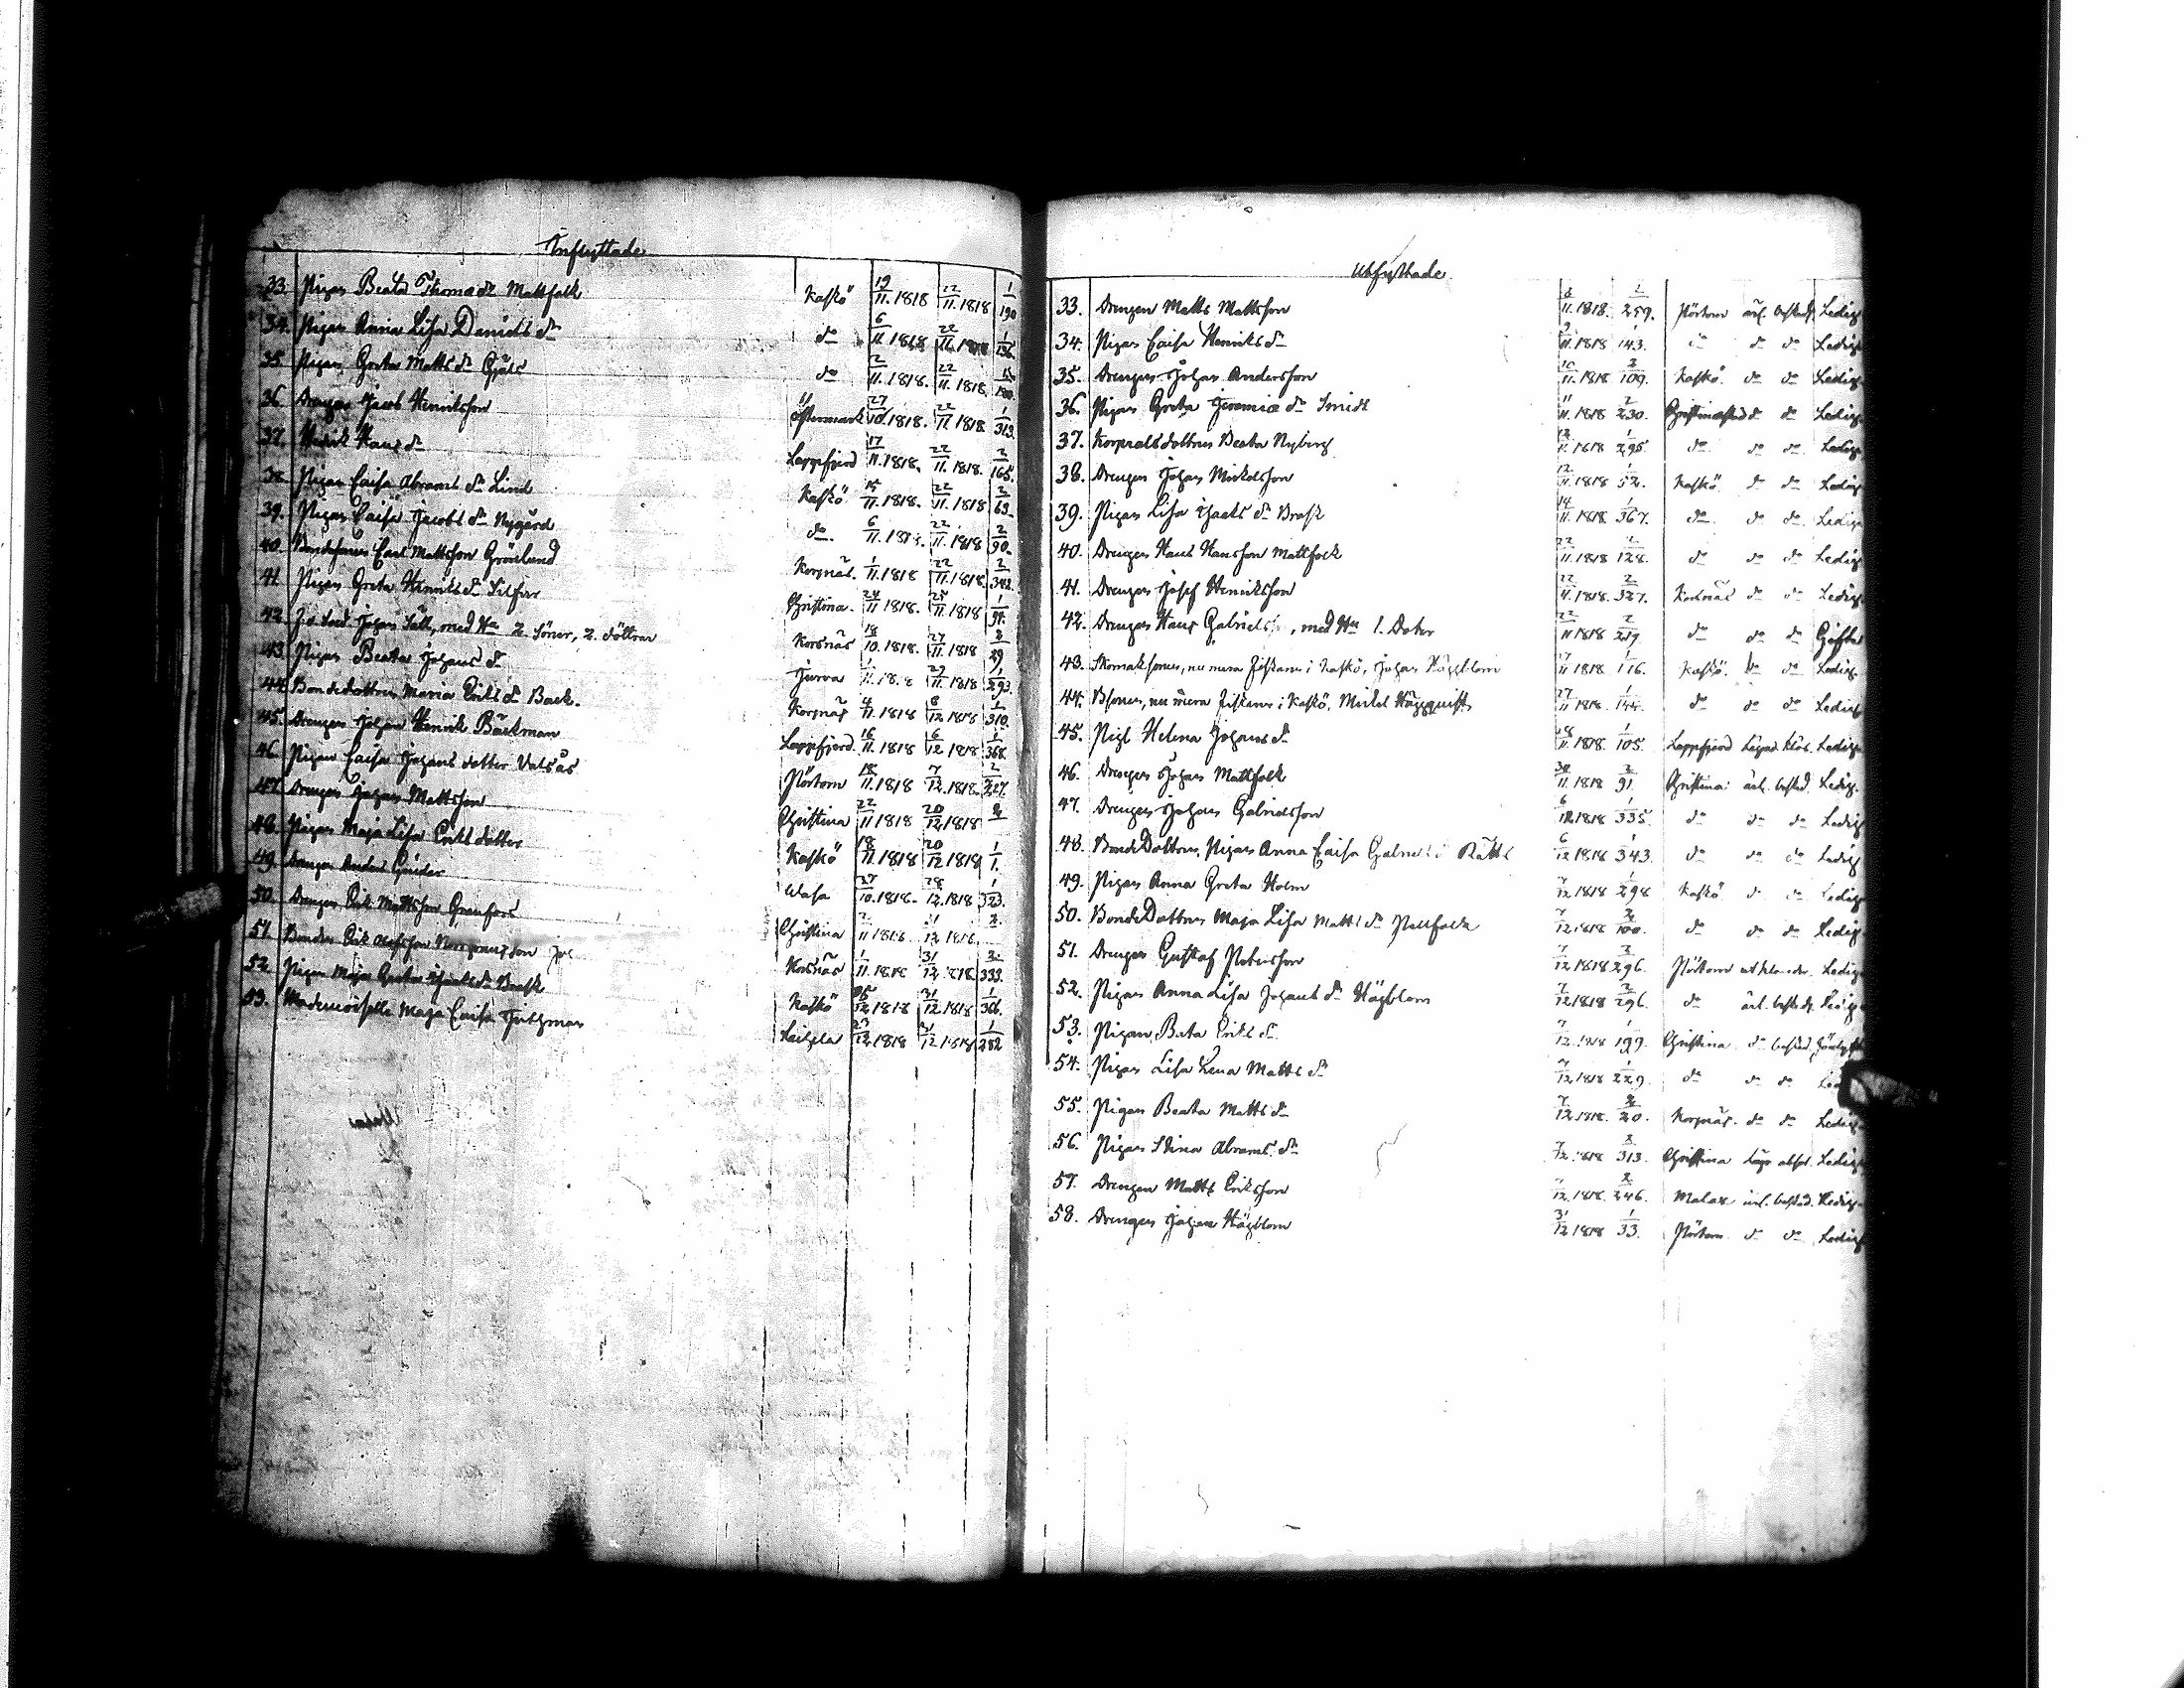 Inflyttade
33. Pigan Beata Thomædr Mattfolk Kaskö 19/11.1818 22/11.1818 1/190
34. Pigan Anna Lisa Daniels dr do 6/11 1818 22/11.1818 1/136
35. Pigan Greta Matts dr do 2/11.1818. 22/11.1818.
36. Drengen Jacob Henriksson Östermark 27/10.1818. 22/11 1818 1/313.
37. Hans dr Lappfjerd 17/11.1818. 22/11.1818. 2/165.
38. Pigan Caisa Abrams dr Lind Kaskö 15/11.1818. 22/11.1818 2/63
39. Pigan Caisa Jacobs dr Nygård do. 6/11.1818. 22/11.1818 2/90.
40. Bondesonen Carl Mattsson Grönlund Korsnäs. 1/11.1818 22/11.1818. 2/342.
41. Pigan Greta Henriks dr Silfver Christina. 24/11 1818. 25/11 1818 1/91.
42. Johan Säll, med Hu 2. Söner, 2. döttrar Korsnäs 18/10.1818. 27/11 1818 2/29
43. Pigan Beata Johans dr Jurva 1/11.1818 29/11.1818 1/293.
44. Bondedottren Maria Eriks dr Back. Korsnäs 4/11.1818 6/12.1818 1/310.
45. Drengen Johan Henrik Bäckman Lappfjerd. 16/11.1818 6/12 1818 1/368.
46. Pigan Caisa Johans dotter Valsås Pörtom 18/11.1818 7/12.1818. 2/227.
47. Drengen Johan Mattsson Christina 22/11 1818 20/12 1818 2
48. Pigan Maja Lisa Eriks dotter Kaskö 18/11.1818 20/12 1818 1/1.
49. Drengen Anders Wasa 27/10.1818. 28/12.1818 1/323.
50. Drengen Erik Mattsson Granfors Christina 2/11 1818 12 1818.
51. Bonden Erik Korsnäs 1/11.1818 31/12.1818 2/333.
52. Pigan Maja Greta Isaks dr Brask Kaskö 12.1818 31/12 1818 1/366.
53. Mademoiselle Maja Caisa 12.1818 31/12 1818 1/282
Utflyttade
33. Drengen Matts Mattsson 8/11.1818. 2/259. Pörtom ärl. besked. Ledig
34. Pigan Caisa Henriks dr 9/11.1818 1/143. do do do Ledig
35. Drengen Johan Andersson 10/11.1818 2/109. Kaskö. do do Ledig
36. Pigan Greta Jeremiæ dr Smidt 11/11.1818 2/230. Christinæstad do do Ledig
37. Korpralsdottren Beata Nyberg 11.1818 1/295. do. do do. Ledig
38. Drengen Johan Mickelsson 12/11.1818 1/52. Kaskö do do Ledig
39. Pigan Lisa Isaaks dr Brask 14/11.1818. 1/367. do. do. do. Ledig
40. Drengen Hans Hansson Mattfolk 22/11.1818 2/128. do do do Ledig
41. Drengen Josef Henriksson 22/11.1818. 2/327. Korsnäs do do Ledig.
42. Drengen Hans Gabriels, med Hu 1. Doter 22/11 1818 2/219. do do do Gifter
43. Skomaksonen, nu mera Fiskaren i Kaskö, Johan Häggblom 27/11 1818 1/176. Kaskö. do do Ledig.
44. Bsonen, nu mera Fiskaren i Kaskö, Mickel Häggquist 27/11 1818. 1/144. do do do Ledig
45. Pigl Helena Johans dr 28/11 1818. 1/105. Lappfjerd Ledig
46. Drengen Johan Mattfolk 30/11.1818 2/91 Christina ärl. besked. Ledig.
47. Drengen Johan Gabrielsson 6/12.1818 1/335. do do do Ledig
48. BondeDottren, Pigan Anna Caisa 6/12 1818 1/343. do do do Ledig
49. Pigan Anna Greta Holm 7/12 1818 1/298 Kaskö do do Ledig
50. BondeDottren Maja Lisa Matts dr 7/12.1818 2/100. do do do Ledig.
51. Drengen Gustaf Petersson 7/12 1818 2/296. Pörtom Ledig.
52. Pigan Anna Lisa Johans dr Hägblom 7/12 1818 2/296. do ärl. besked. Ledig
53. Pigan Beata Eriks dr 7/12.1818 1/199. Christina do besked.
54. Pigan Lisa Lena Matts dr 7/12.1818 1/229. do do do
55. Pigan Beata Matts dr 7/12.1818. 2/20. Korsnäs. do do Ledig
56. Pigan Stina Abrams dr 7/12.1818 2/313. Christina Ledig
57. Drengen Matts Eriksson 7/12.1818. 2/246. Malax ärl. besked. Ledig.
58. Drengen Johan Hägblom 31/12 1818 1/33. Pörtom do do Ledig